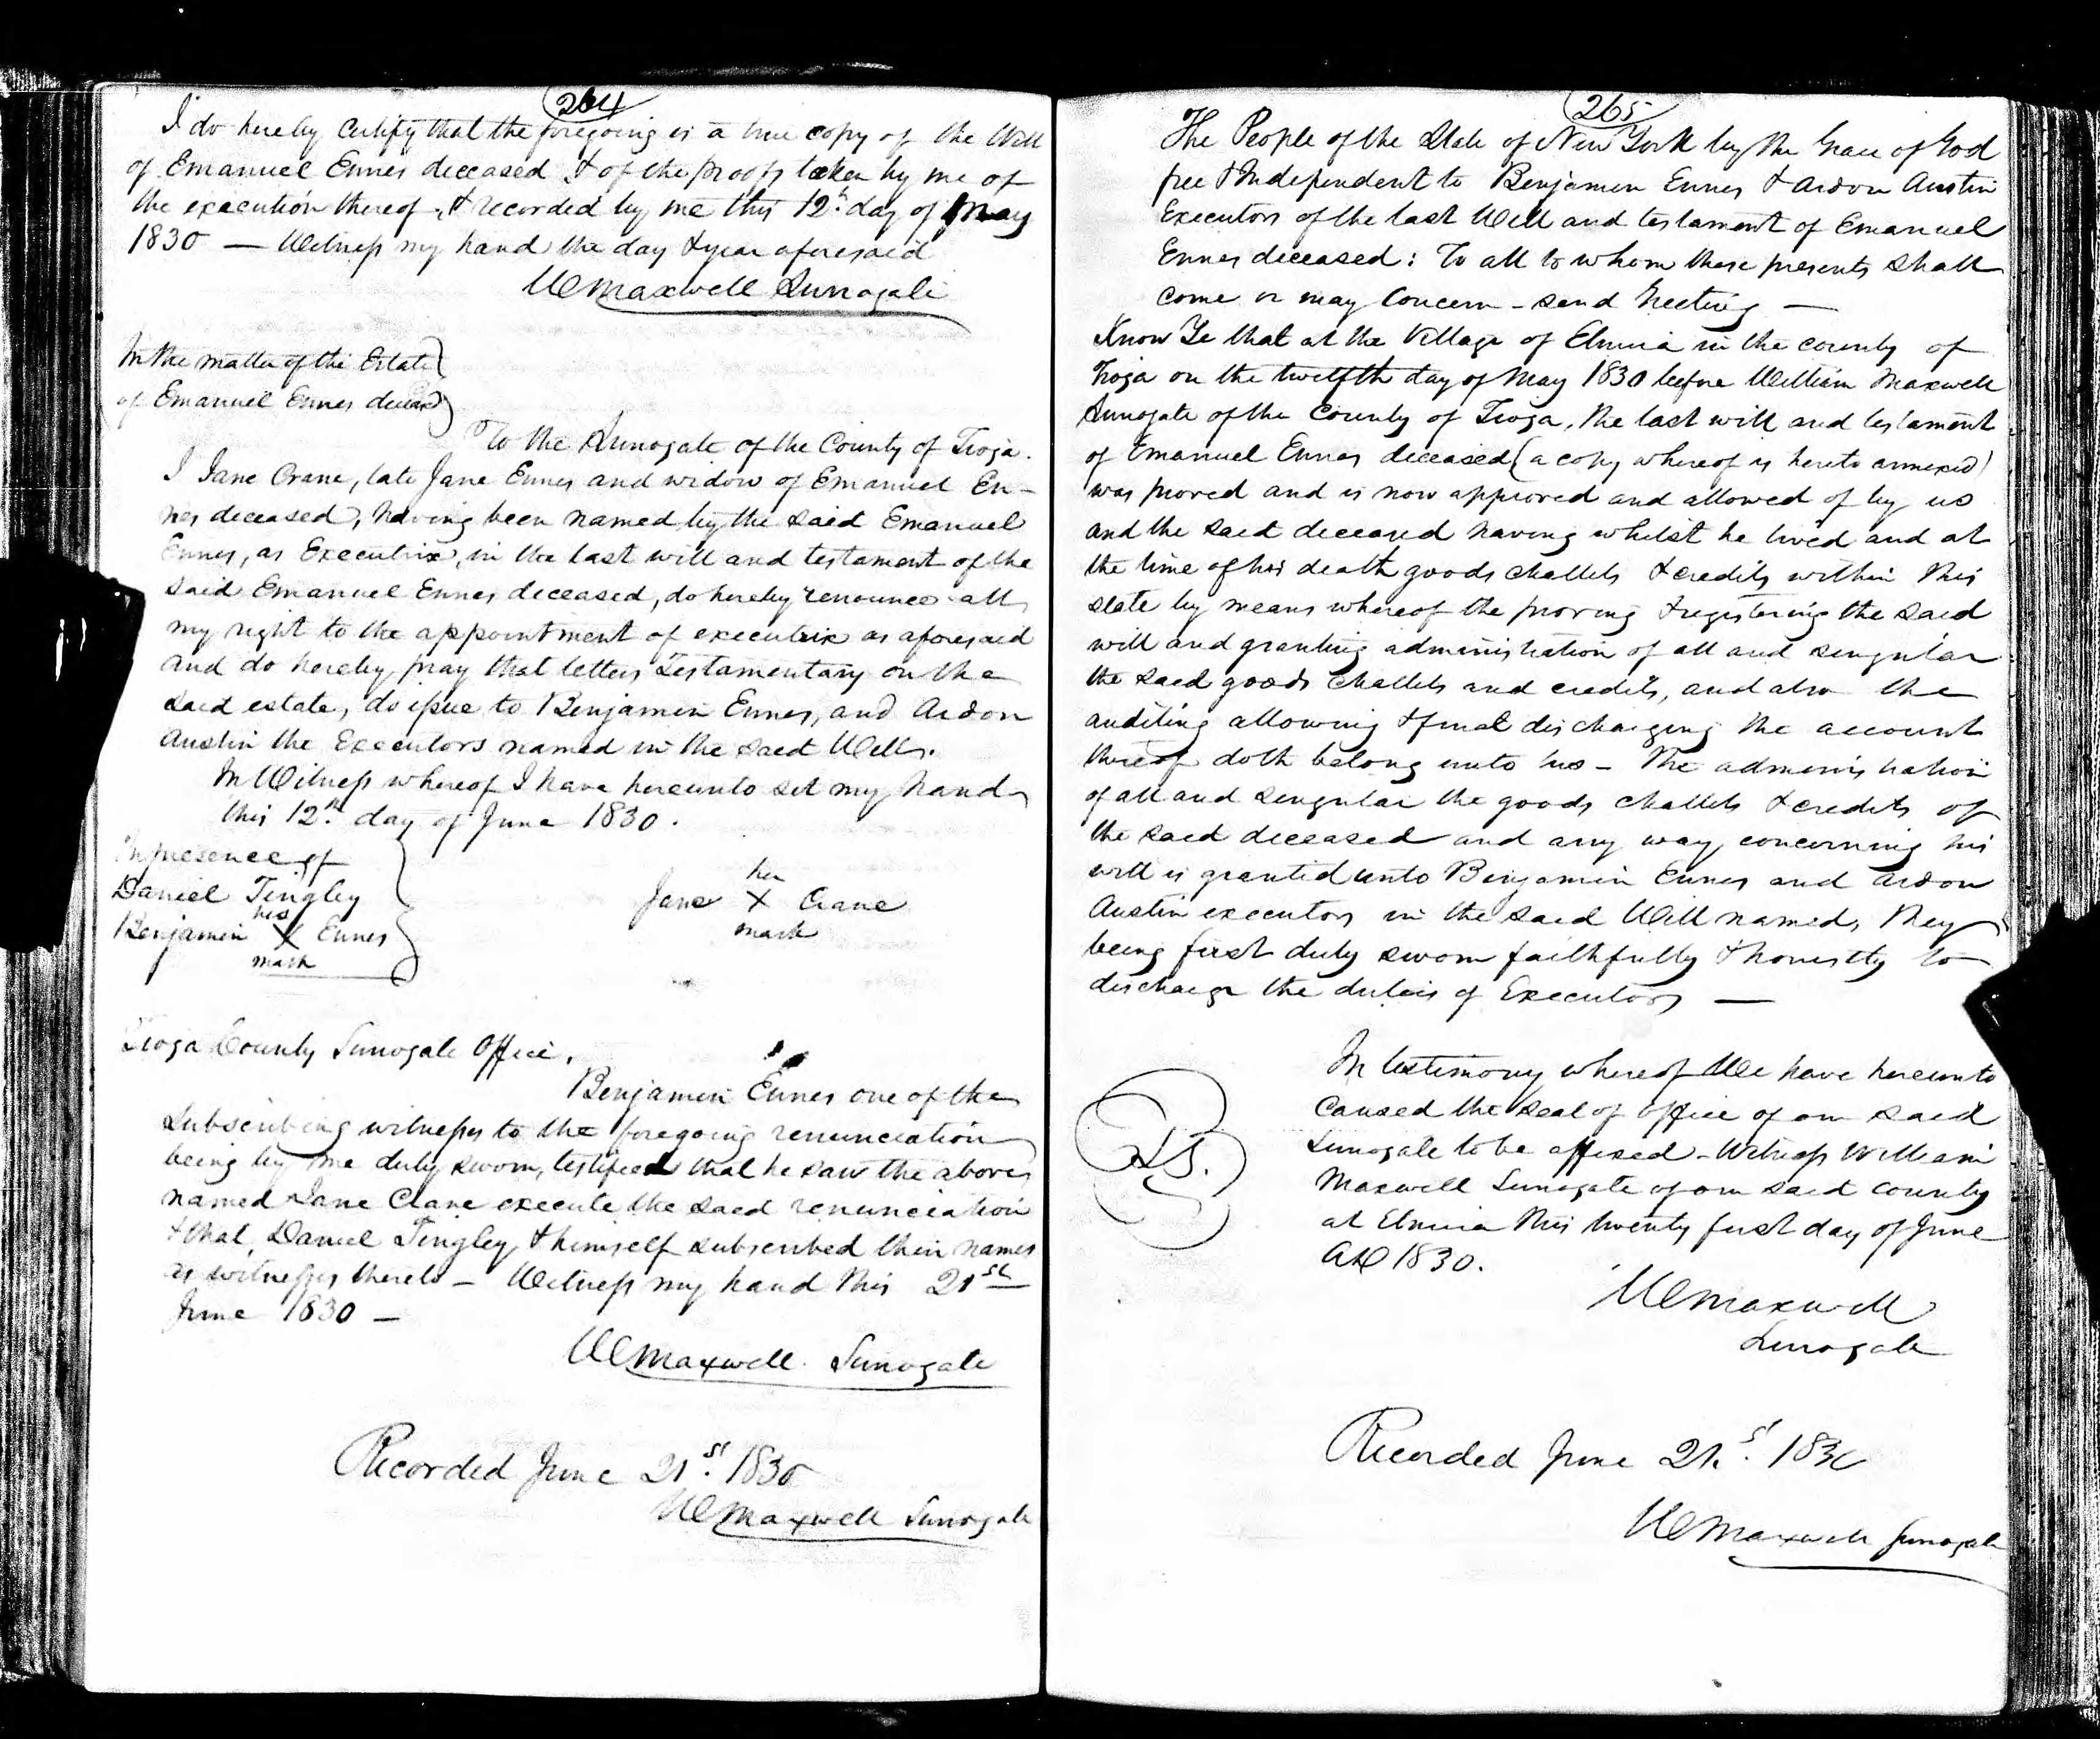 264
I do hereby Certify that the foregoing is a true copy of the Will
of Emanuel Ennes deceased & of the proofs taken by me of
the execution thereof, & recorded by me this 12th day of May
1830 — Witness my hand the day & year aforesaid
WMaxwell Surrogate
In the matter of the Estate
of Emanuel Ennes deceasd
To the Surrogate of the County of Tioga.
I Jane Crane, late Jane Ennes and widow of Emanuel En-
nes deceased, having been named by the said Emanuel
Ennes, as Executrix, in the last will and testament of the
said Emanuel Ennes deceased, do hereby renounce all
my right to the appointment of executrix as aforesaid
and do hereby pray that letters testamentary on the
said estate, do issue to Benjamin Ennes, and Ardon
Austin the Executors named in the said Will.
In Witness whereof I have hereunto set my hand
this 12th day of June 1830.
In presence of
Daniel Tingley
his
Benjamin X Ennes
mark
her
Jane X Crane
mark
Tioga County Surrogate Office,
Benjamin Ennes one of the
Subscribing witnesses to the foregoing renunciation
being by me duly sworn, testified that he saw the above
named Jane Crane execute the said renunciation
& that Daniel Tingley & himself subscribed their names
as witnesses thereto — Witness my hand this 21st
June 1830 —
WMaxwell Surrogate
Recorded June 21st 1830
WMaxwell Surrogate
265
The People of the State of New York by the Grace of God
free & Independent to Benjamin Ennes & Ardon Austin
Executors of the last Will and testament of Emanuel
Ennes deceased: To all to whom these presents shall
come or may Concern - send Greeting —
Know Ye that at the Village of Elmira in the county of
Tioga on the twelfth day of May 1830 before William Maxwell
Surrogate of the County of Tioga, the last will and testament
of Emanuel Ennes deceased (a copy whereof is hereto annexed)
was proved and is now approved and allowed of by us
and the said deceased having whilst he lived and at
the time of his death goods chattels & credits within this
state by means whereof the proving & registering the said
will and granting administration of all and singular
the said goods chattels and credits, and also the
auditing allowing & final discharging the account
thereof doth belong unto us - The administration
of all and singular the goods chattels & credits of
the said deceased and any way concerning his
will is granted unto Benjamin Ennes and Ardon
Austin executors in the said Will named, they
being first duly sworn faithfully & honestly to
discharge the duties of Executors —
In testimony whereof We have hereunto
caused the Seal of office of our said
Surrogate to be affixed - Witness William
Maxwell Surrogate of our said county
at Elmira this twenty first day of June
AD 1830.
LS.
WMaxwell
Surrogate
Recorded June 21st. 1830
WMaxwell Surrogate